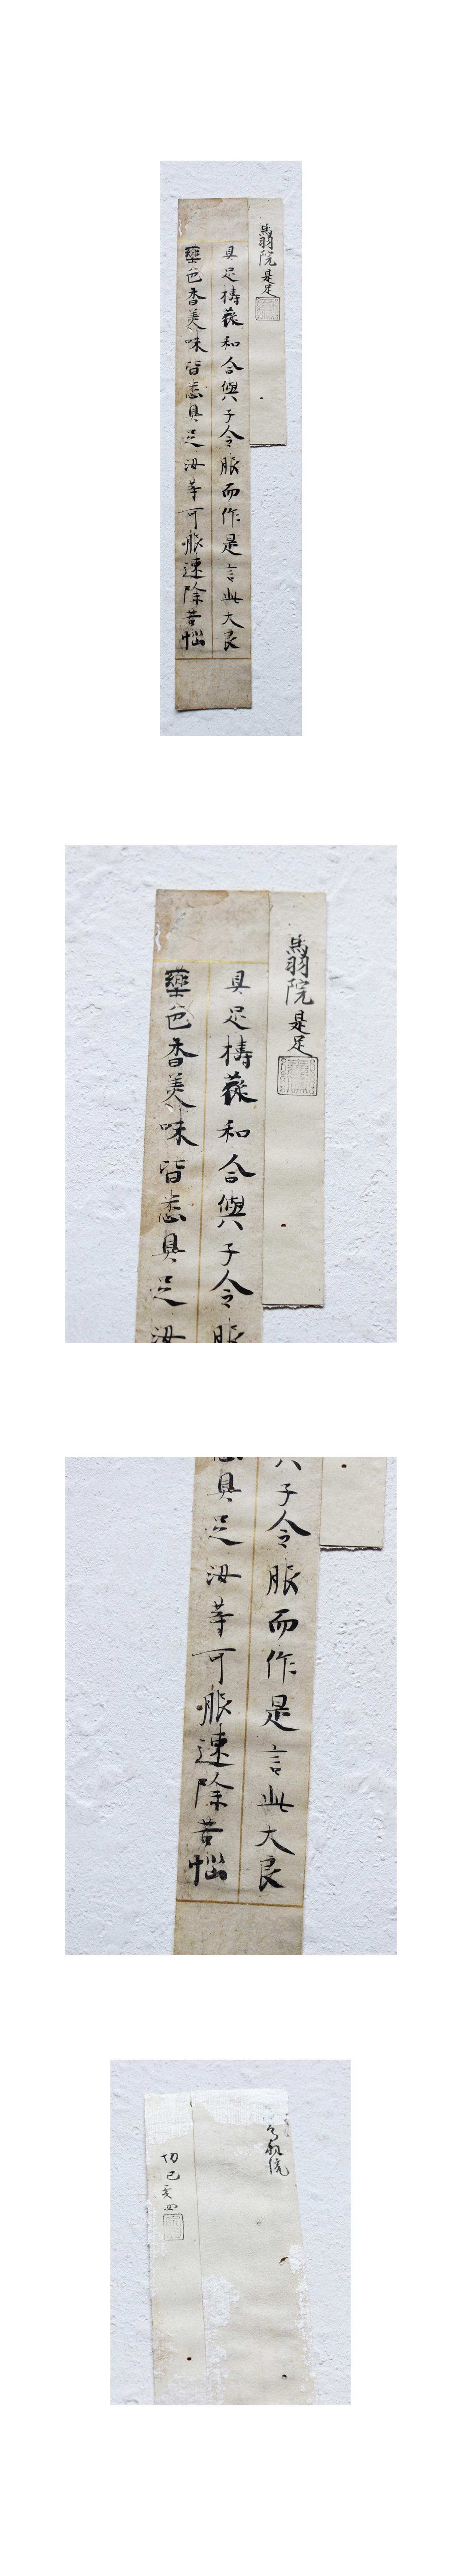 鳥羽院 是足
具足擣篩和合與子令服而作是言此大良
藥色香美味皆悉具足汝等可服速除苦惱
鳥羽院 是足
具足擣篩和合與子令服
藥色香美味皆悉具足汝
子令服而作是言此大良
悉具足汝等可服速除苦惱
鳥羽院
切己亥四